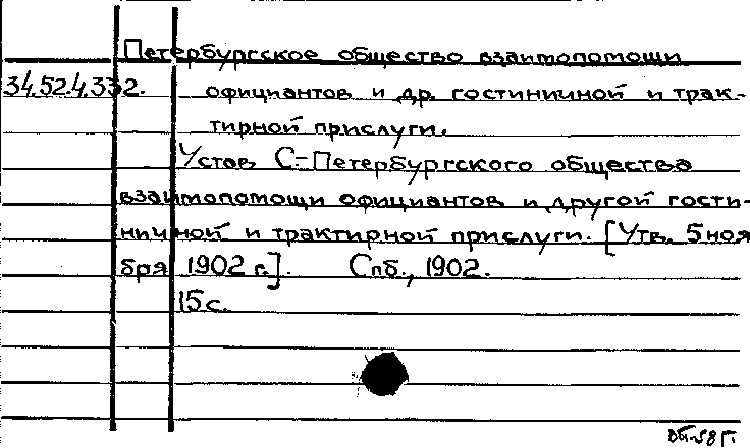 Петербургское общество взаимопомощи
34.52.4.332. официантов и др. гостиничной и трак-
тирной прислуги.
Устав С-Петербургского общества
взаимопомощи официантов и другой гости-
ничной и трактирной прислуги. [Утв. 5 ноя
бря 1902 г.]. Спб., 1902.
15 с.